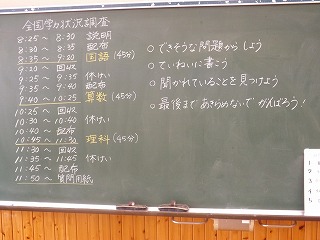 全国学力状況調査
8:25 ～ 8:30 説明
8:30 ～ 8:35 配布
8:35 ～ 9:20 国語 (45分)
9:20 ～ 回収
9:25 ～ 9:35 休けい
9:35 ～ 9:40 配布
9:40 ～ 10:25 算数 (45分)
10:25 ～ 回収
10:30 ～ 10:40 休けい
10:40 ～ 配布
10:45 ～ 11:30 理科 (45分)
11:30 ～ 回収
11:35 ～ 11:45 休けい
11:45 ～ 配布
11:50 ～ 質問用紙
○できそうな問題から しよう
○ていねいに書こう
○聞かれていることを見つけよう
○最後まであきらめないで がんばろう！
1
2
3
4
5